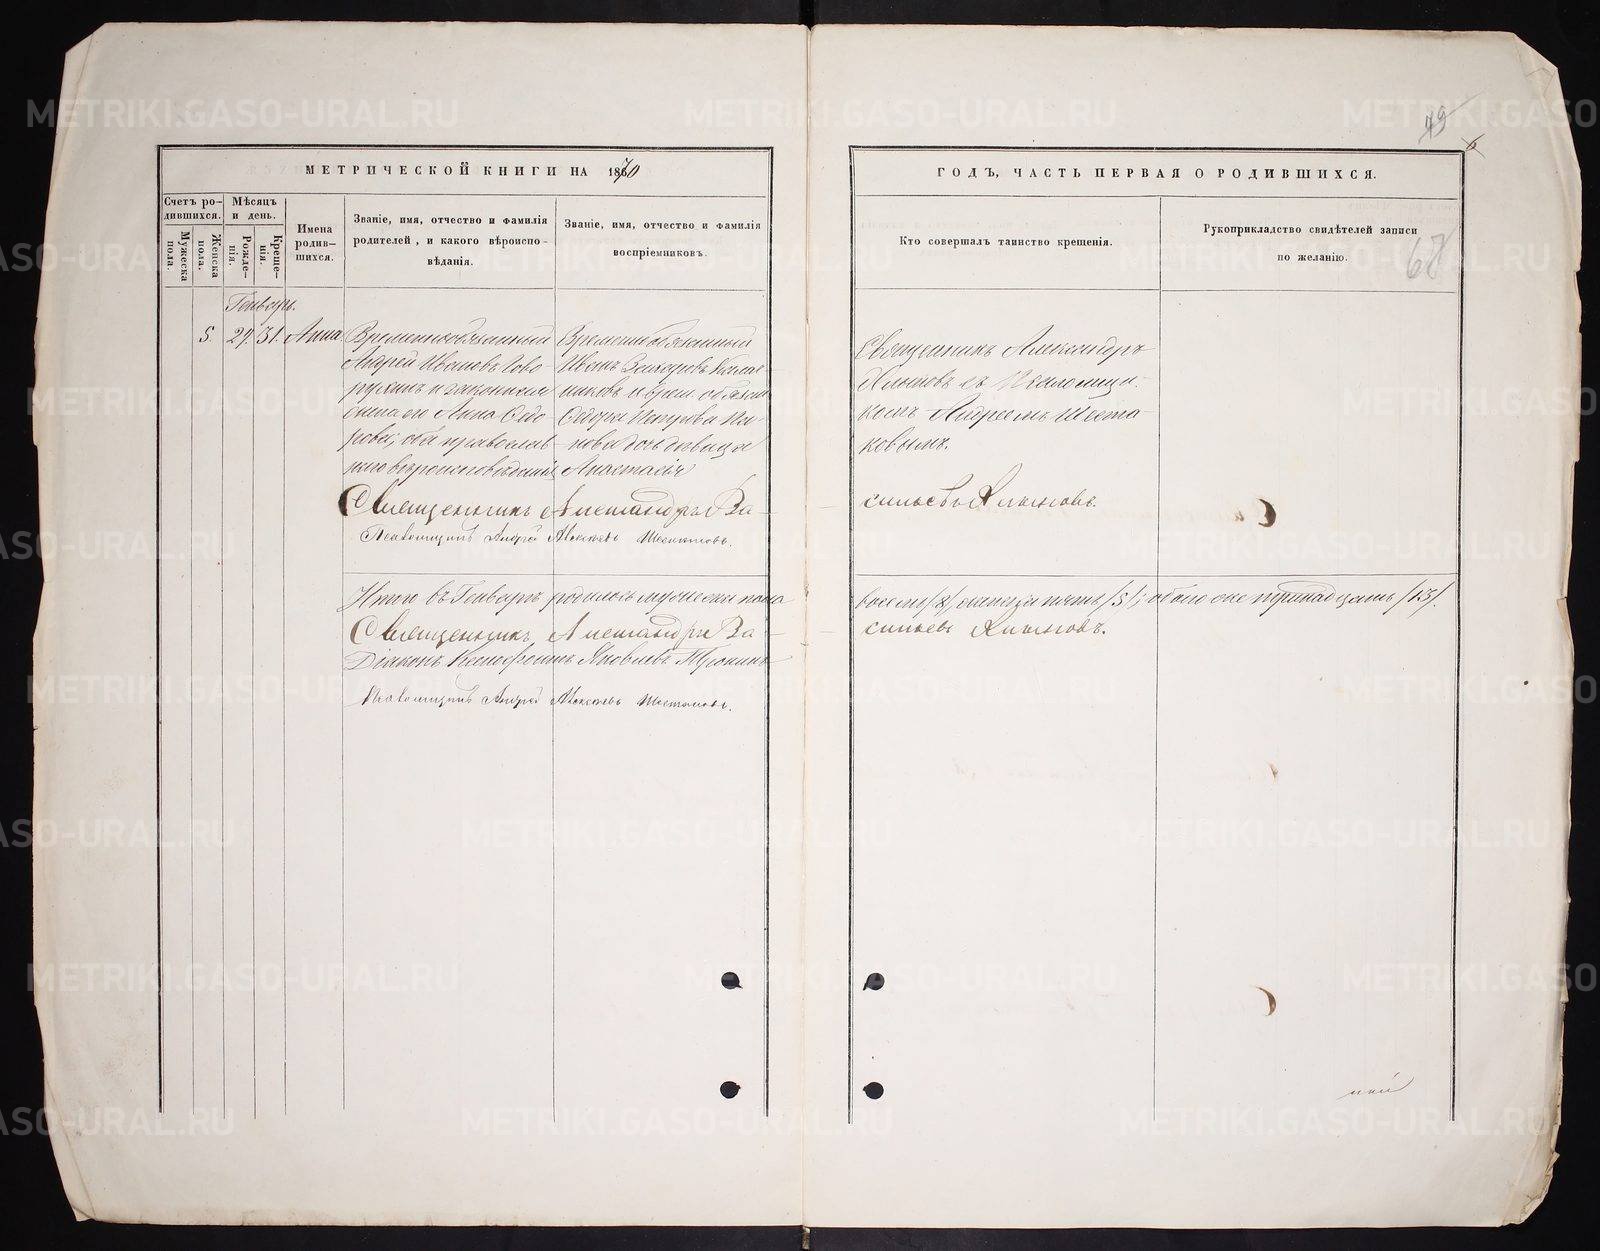 МЕТРИЧЕСКОЙ КНИГИ НА 1870
ГОДЪ, ЧАСТЬ ПЕРВАЯ О РОДИВШИХСЯ.
Счетъ родившихся.
Мужеска пола.
Женска пола.
Мѣсяцъ и день.
Рожденія.
Крещенія.
Имена родившихся.
Званіе, имя, отчество и фамилія
родителей, и какого вѣроиспо-
вѣданія.
Званіе, имя, отчество и фамилія
воспріемниковъ.
Кто совершалъ таинство крещенія.
Рукоприкладство свидѣтелей записи
по желанію.
49
67
Генварь.
5. 29. 31. Анна
Временнообязанный
Андрей Ивановъ Гово-
рухинъ и законная
жена его Анна Федо-
рова, оба православ-
наго вѣроисповѣданія
Временнообязанный
Иванъ
Петрова
дочь дѣвица
Анастасія
Священникъ Александръ
Хлыновъ съ Псаломщи-
комъ Андреемъ Шеста-
ковымъ.
Священникъ Александръ Ва-
сильевъ Хлыновъ.
Псаломщикъ Андрей Алексѣевъ Шестаковъ.
Итого въ Генварѣ родилось мужеска пола
восемь /8/, женска пять /5/; обоего же тринадцать /13/.
Священникъ Александръ Ва-
сильевъ Хлыновъ.
Діаконъ Ксенофонтъ Яковлевъ Тронинъ
Псаломщикъ Андрей Алексѣевъ Шестаковъ.
METRIKI.GASO-URAL.RU